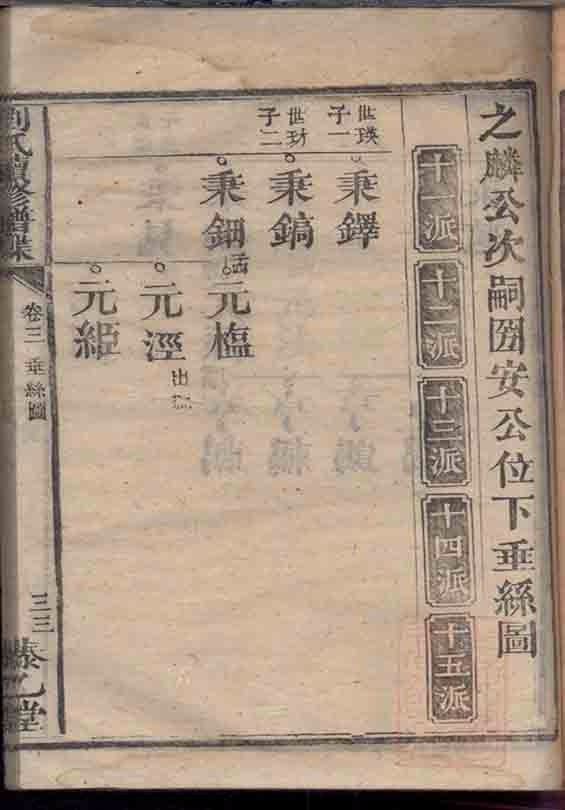 之麟公次嗣囶安公位下垂絲圖
十一派
十二派
十三派
十四派
十五派
世瑛
子一
秉鐸
世玏
子二
秉鎬
秉鈿
元榲
元涇
出
元
劉氏續修譜牒
卷三 垂絲圖
三三
藜乙堂